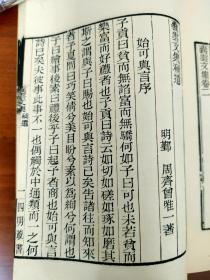 囊雲文集卷二
囊雲文集補遺
明鄞 周齊曾唯一著
始可與言序
子貢曰貧而無諂富而無驕何如子曰可也未若貧而
樂富而好禮者也子貢曰詩云如切如磋如琢如磨其
斯之謂與子曰賜也始可與言詩已矣告諸往而知來
者子夏問曰巧笑倩兮美目盼兮素以爲絢兮何謂也
子曰繪事後素曰禮後乎子曰起予者商也始可與言
詩已矣夫彼事此事不一也偶觸於中通類而一之何
一 四明叢書